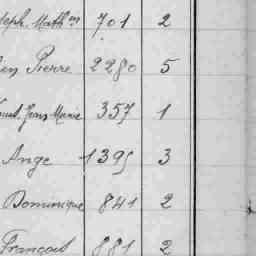 Math 701 2
Pierre 2280 5
Jean Marie 357 1
Ange 1395 3
Dominique 841 2
François 881 2